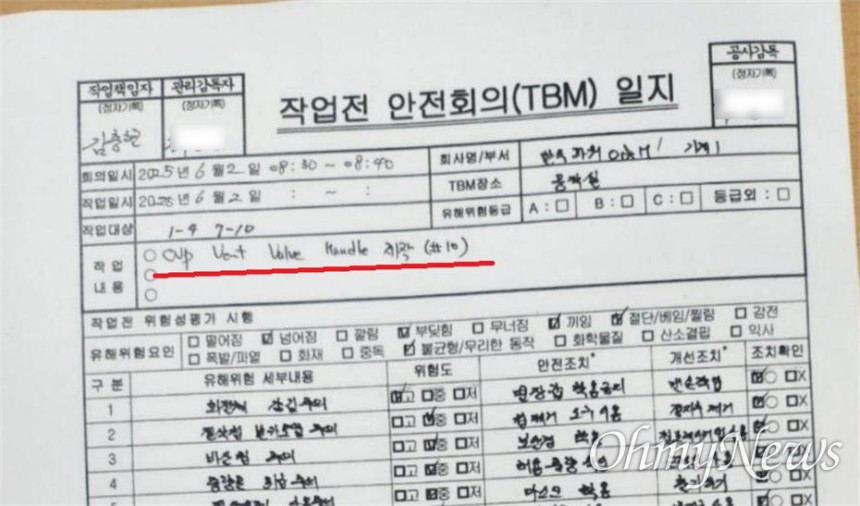 작업책임자 관리감독자
(정자기록) (정자기록)
김충현
공사감독
(정자기록)
작업전 안전회의(TBM) 일지
회의일시 2025년 6월 2일 08:30 ~ 08:40
회사명/부서 한국파워O&M / 기계1
작업일시 2025년 6월 2일 : ~ :
TBM장소 공작실
작업대상 1-4 7-10
유해위험등급 A : □ B : □ C : □ 등급외 : □
작업내용
○ CVP Vent Valve Handle 제작 (#10)
○
○
작업전 위험성평가 시행
유해위험요인
□ 떨어짐 ☑ 넘어짐 □ 깔림 ☑ 부딪힘 □ 무너짐 ☑ 끼임 ☑ 절단/베임/찔림 □ 감전
□ 폭발/파열 □ 화재 □ 중독 ☑ 불균형/무리한 동작 □ 화학물질 □ 산소결핍 □ 익사
구 분 유해위험 세부내용 위험도 안전조치* 개선조치* 조치확인
1 회전체 감김주의 ☑고 □중 □저 면장갑 착용금지 맨손작업 ☑○ □X
2 주의 □고 ☑중 □저 ☑○ □X
3 비산칩 주의 □고 ☑중 □저 보안경 착용 ☑○ □X
4 중량물 취급주의 □고 ☑중 □저 ☑○ □X
□고 ☑중 □저 마스크 착용 ☑○ □X
OhmyNews